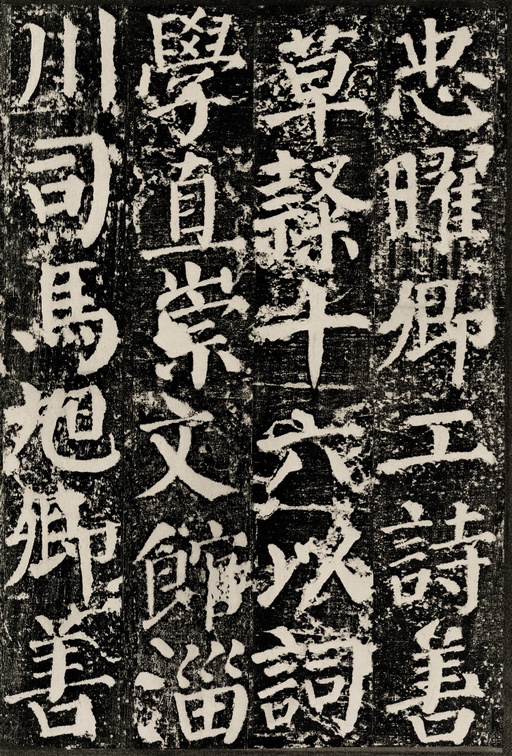 忠曜卿工詩善
草隸十六以詞
學直崇文館淄
川司馬旭卿善